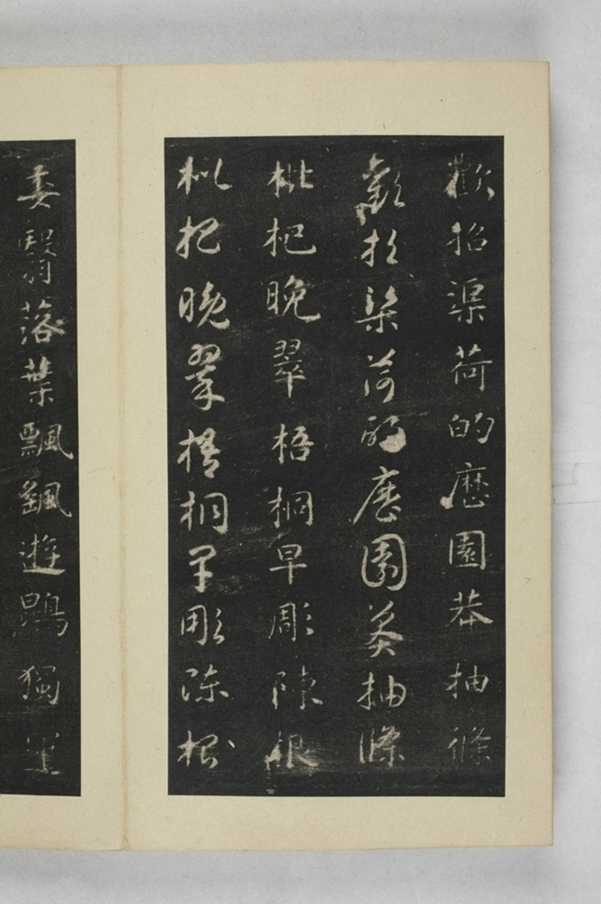 歡招渠荷的歷園莽抽條
歡招渠荷的歷園莽抽條
枇杷晚翠梧桐早彫陳根
枇杷晚翠梧桐早彫陳根
委翳落葉飄颻遊鵾獨運